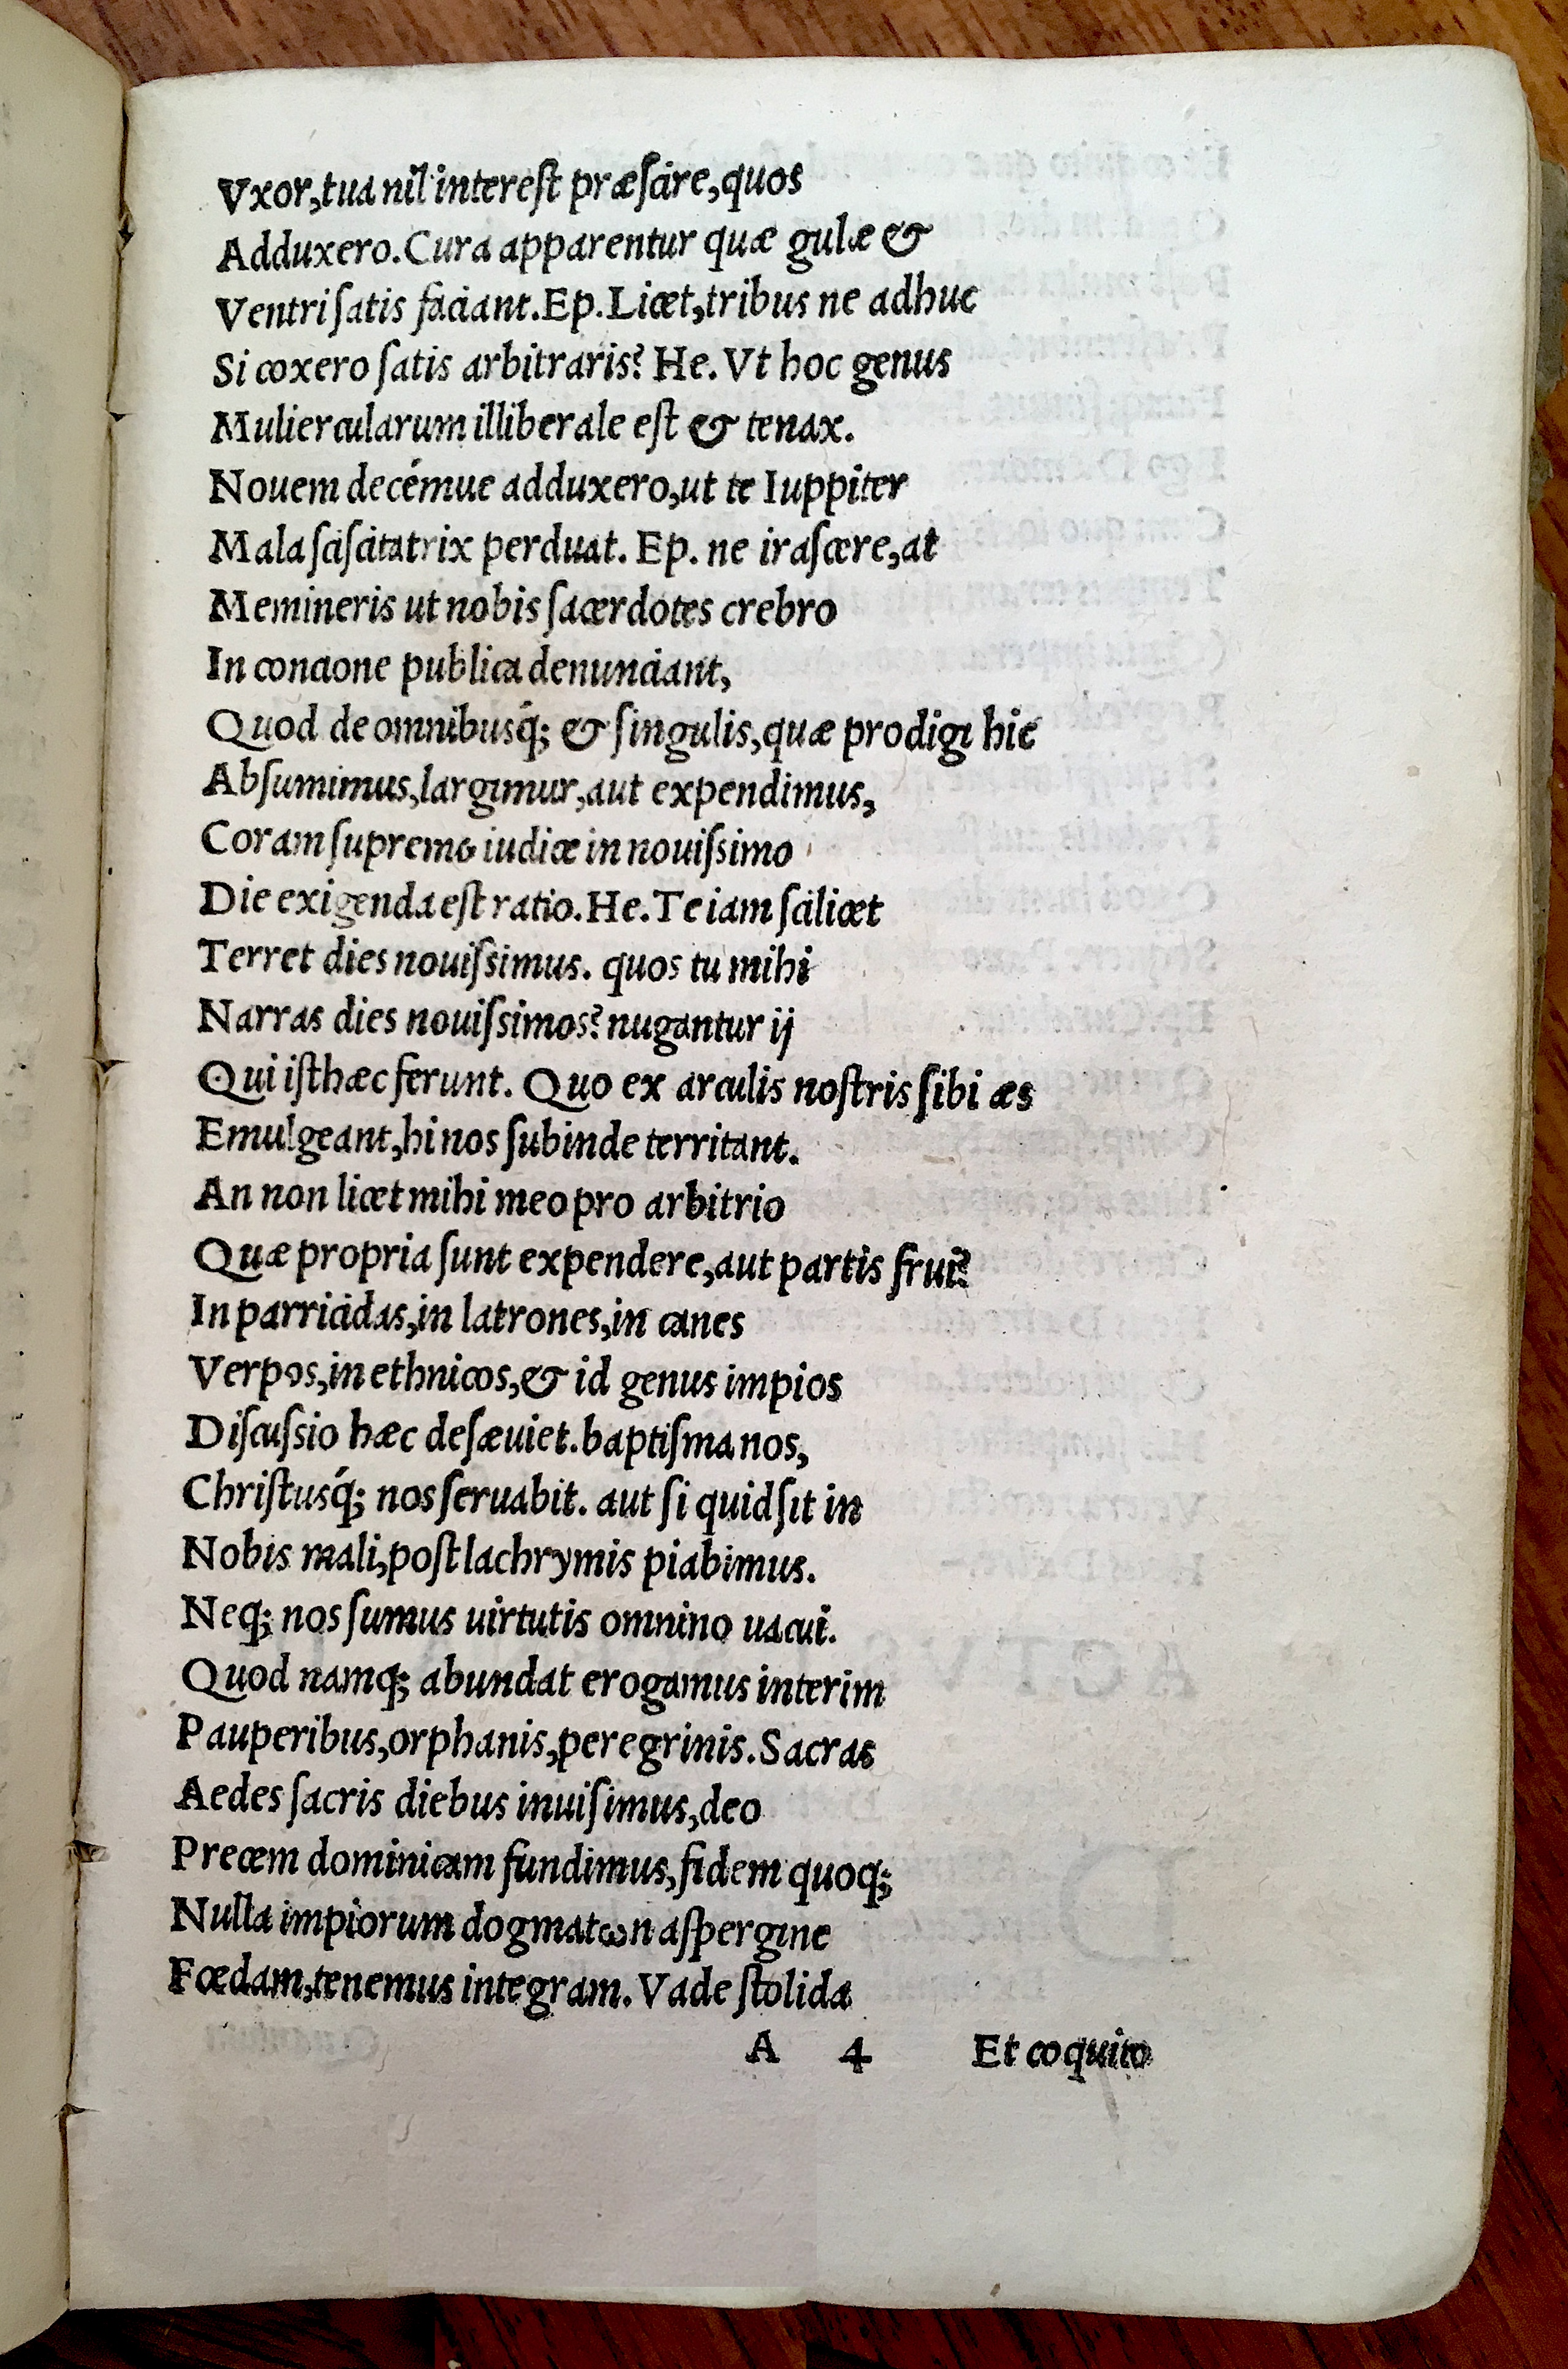 Vxor,tua nil interest præscire,quos
Adduxero.Cura apparentur quæ gulæ &
Ventri satis faciant.Ep.Licet,tribus ne adhuc
Si coxero satis arbitraris? He. Vt hoc genus
Muliercularum illiberale est & tenax.
Nouem decémue adduxero,ut te Iuppiter
Mala sciscitatrix perduat. Ep. ne irascere,at
Memineris ut nobis sacerdotes crebro
In concione publica denunciant,
Quod de omnibusq́; & singulis,quæ prodigi hic
Absumimus,largimur,aut expendimus,
Coram supremo iudice in nouissimo
Die exigenda est ratio.He.Te iam scilicet
Terret dies nouissimus. quos tu mihi
Narras dies nouissimos? nugantur ij
Qui isthæc ferunt. Quo ex arculis nostris sibi æs
Emulgeant,hi nos subinde territant.
An non licet mihi meo pro arbitrio
Quæ propria sunt expendere,aut partis frui?
In parricidas,in latrones,in canes
Verpos,in ethnicos,& id genus impios
Discussio hæc desæuiet.baptisma nos,
Christusq́; nos seruabit. aut si quid sit in
Nobis mali,post lachrymis piabimus.
Neq; nos sumus uirtutis omnino uacui.
Quod namq; abundat erogamus interim
Pauperibus,orphanis,peregrinis.Sacras
Aedes sacris diebus inuisimus,deo
Precem dominicam fundimus,fidem quoq;
Nulla impiorum dogmatωn aspergine
Fœdam,tenemus integram. Vade stolida
A 4 Et coquito